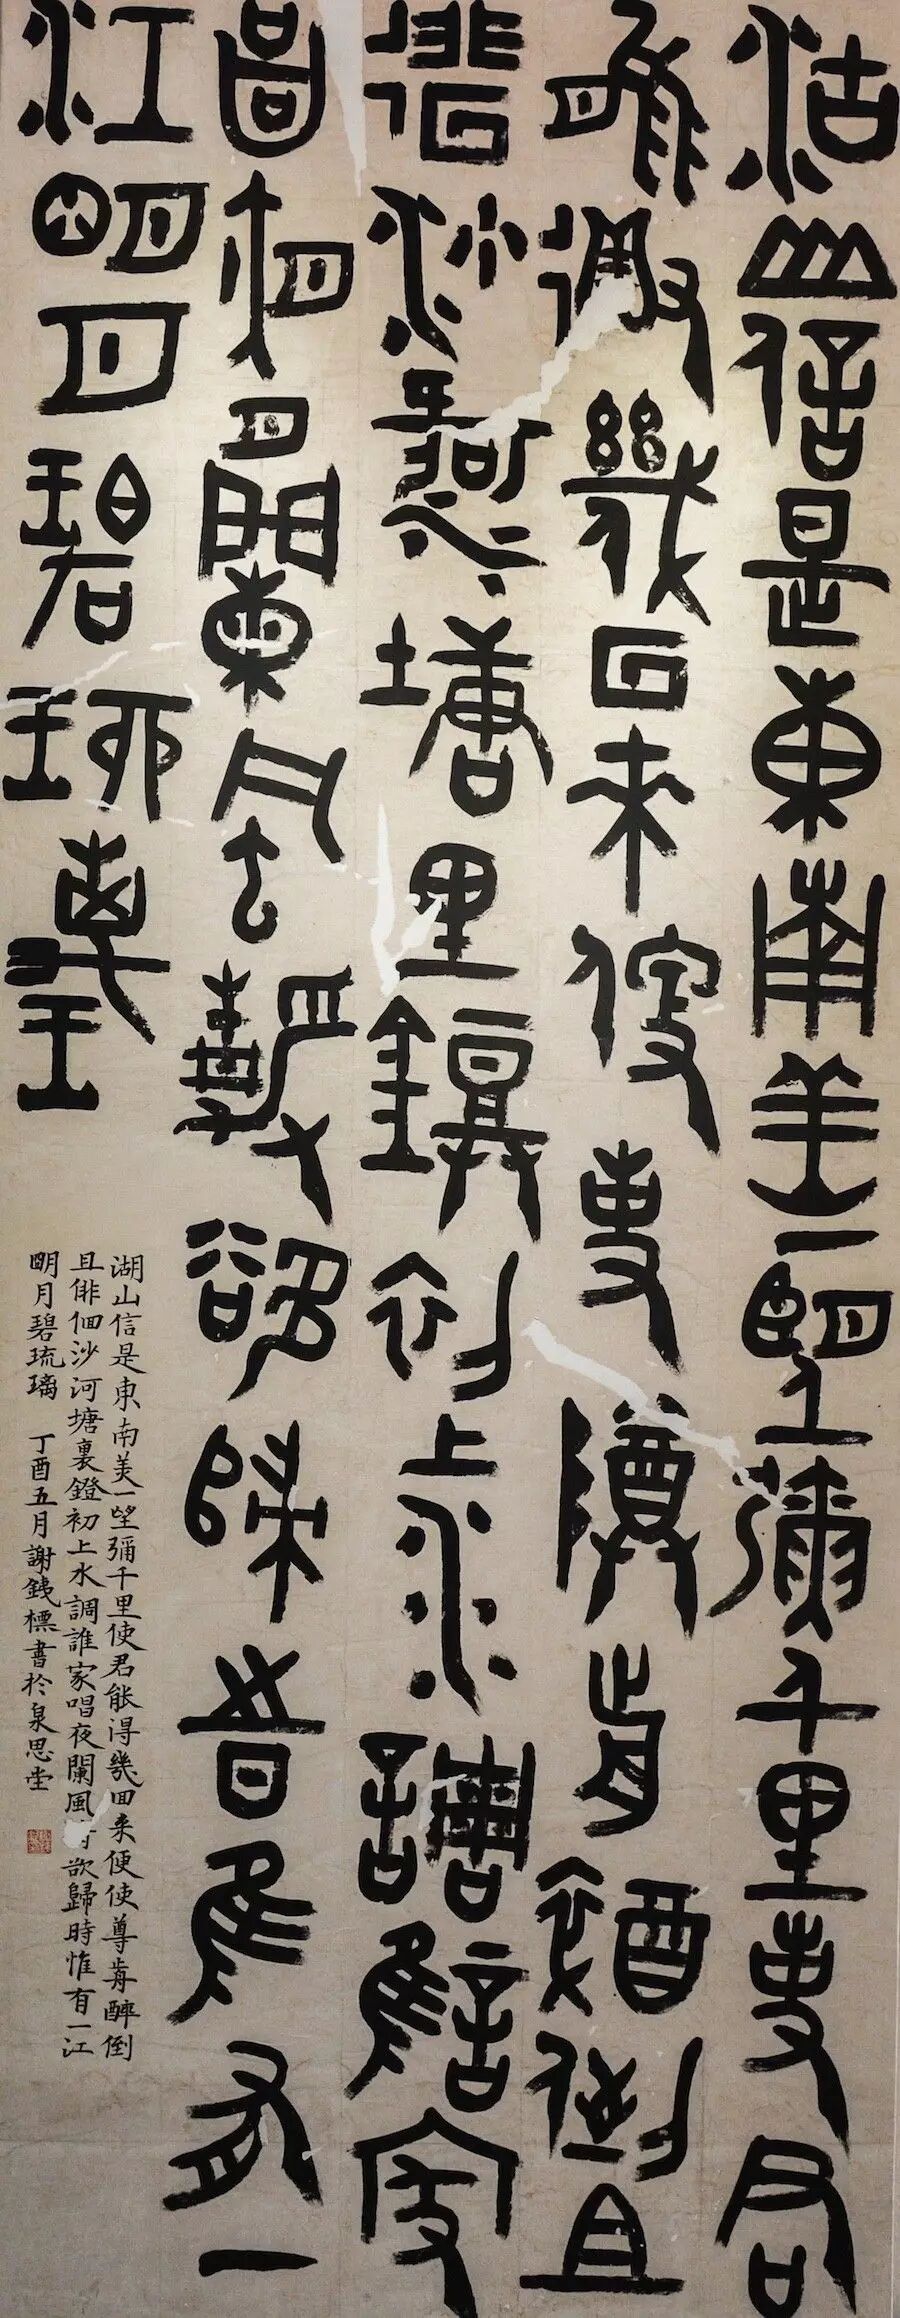 湖山信是東南美一望彌千里使君
能得幾回來便使尊歬醉倒且
徘徊沙河塘里鐙初上水調誰家
唱夜闌風靜欲歸時惟有一
江朙月碧琉璃
湖山信是東南美一望彌千里使君能得幾回來便使尊歬醉倒
且俳佪沙河塘裏鐙初上水調誰家唱夜闌風欲歸時惟有一江
朙月碧琉璃 丁酉五月謝錢標書於泉思堂